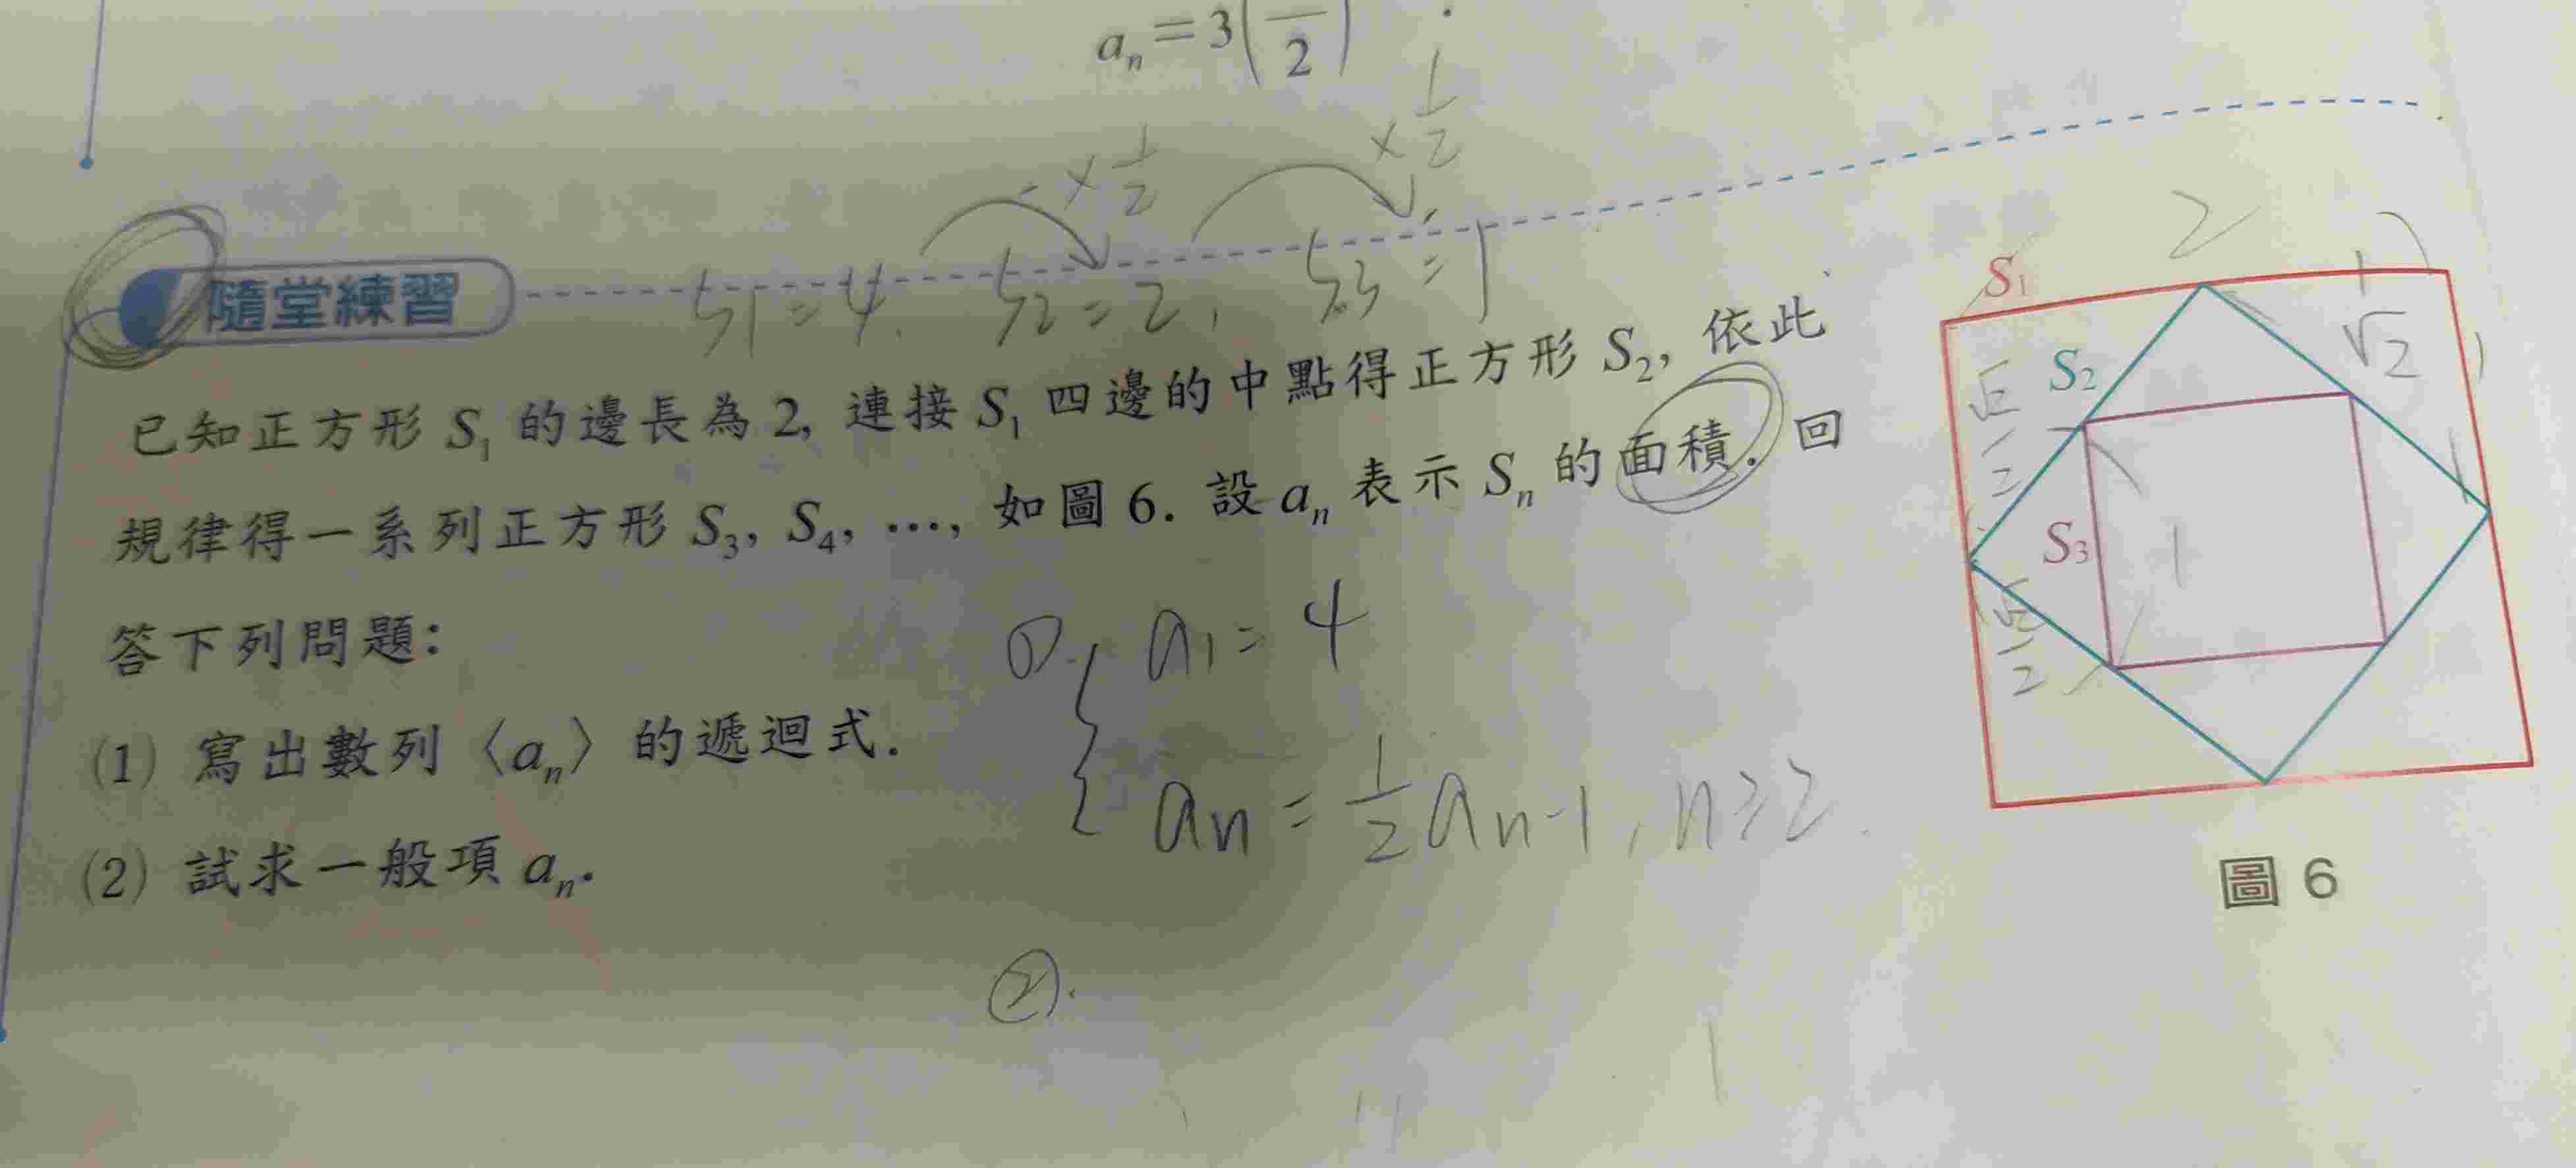 aₙ = 3( /2)
×1/2 ×1/2
隨堂練習
S1 = 4, S2 = 2, S3 = 1
已知正方形 S₁ 的邊長為 2, 連接 S₁ 四邊的中點得正方形 S₂, 依此
規律得一系列正方形 S₃, S₄, …, 如圖 6. 設 aₙ 表示 Sₙ 的面積. 回
答下列問題:
(1) 寫出數列〈aₙ〉的遞迴式.
(2) 試求一般項 aₙ.
①. { a₁ = 4
aₙ = 1/2 aₙ₋₁, n ≥ 2.
②.
2
S₁
1
√2
1
S₂
√2/2
S₃
1
√2/2
圖 6